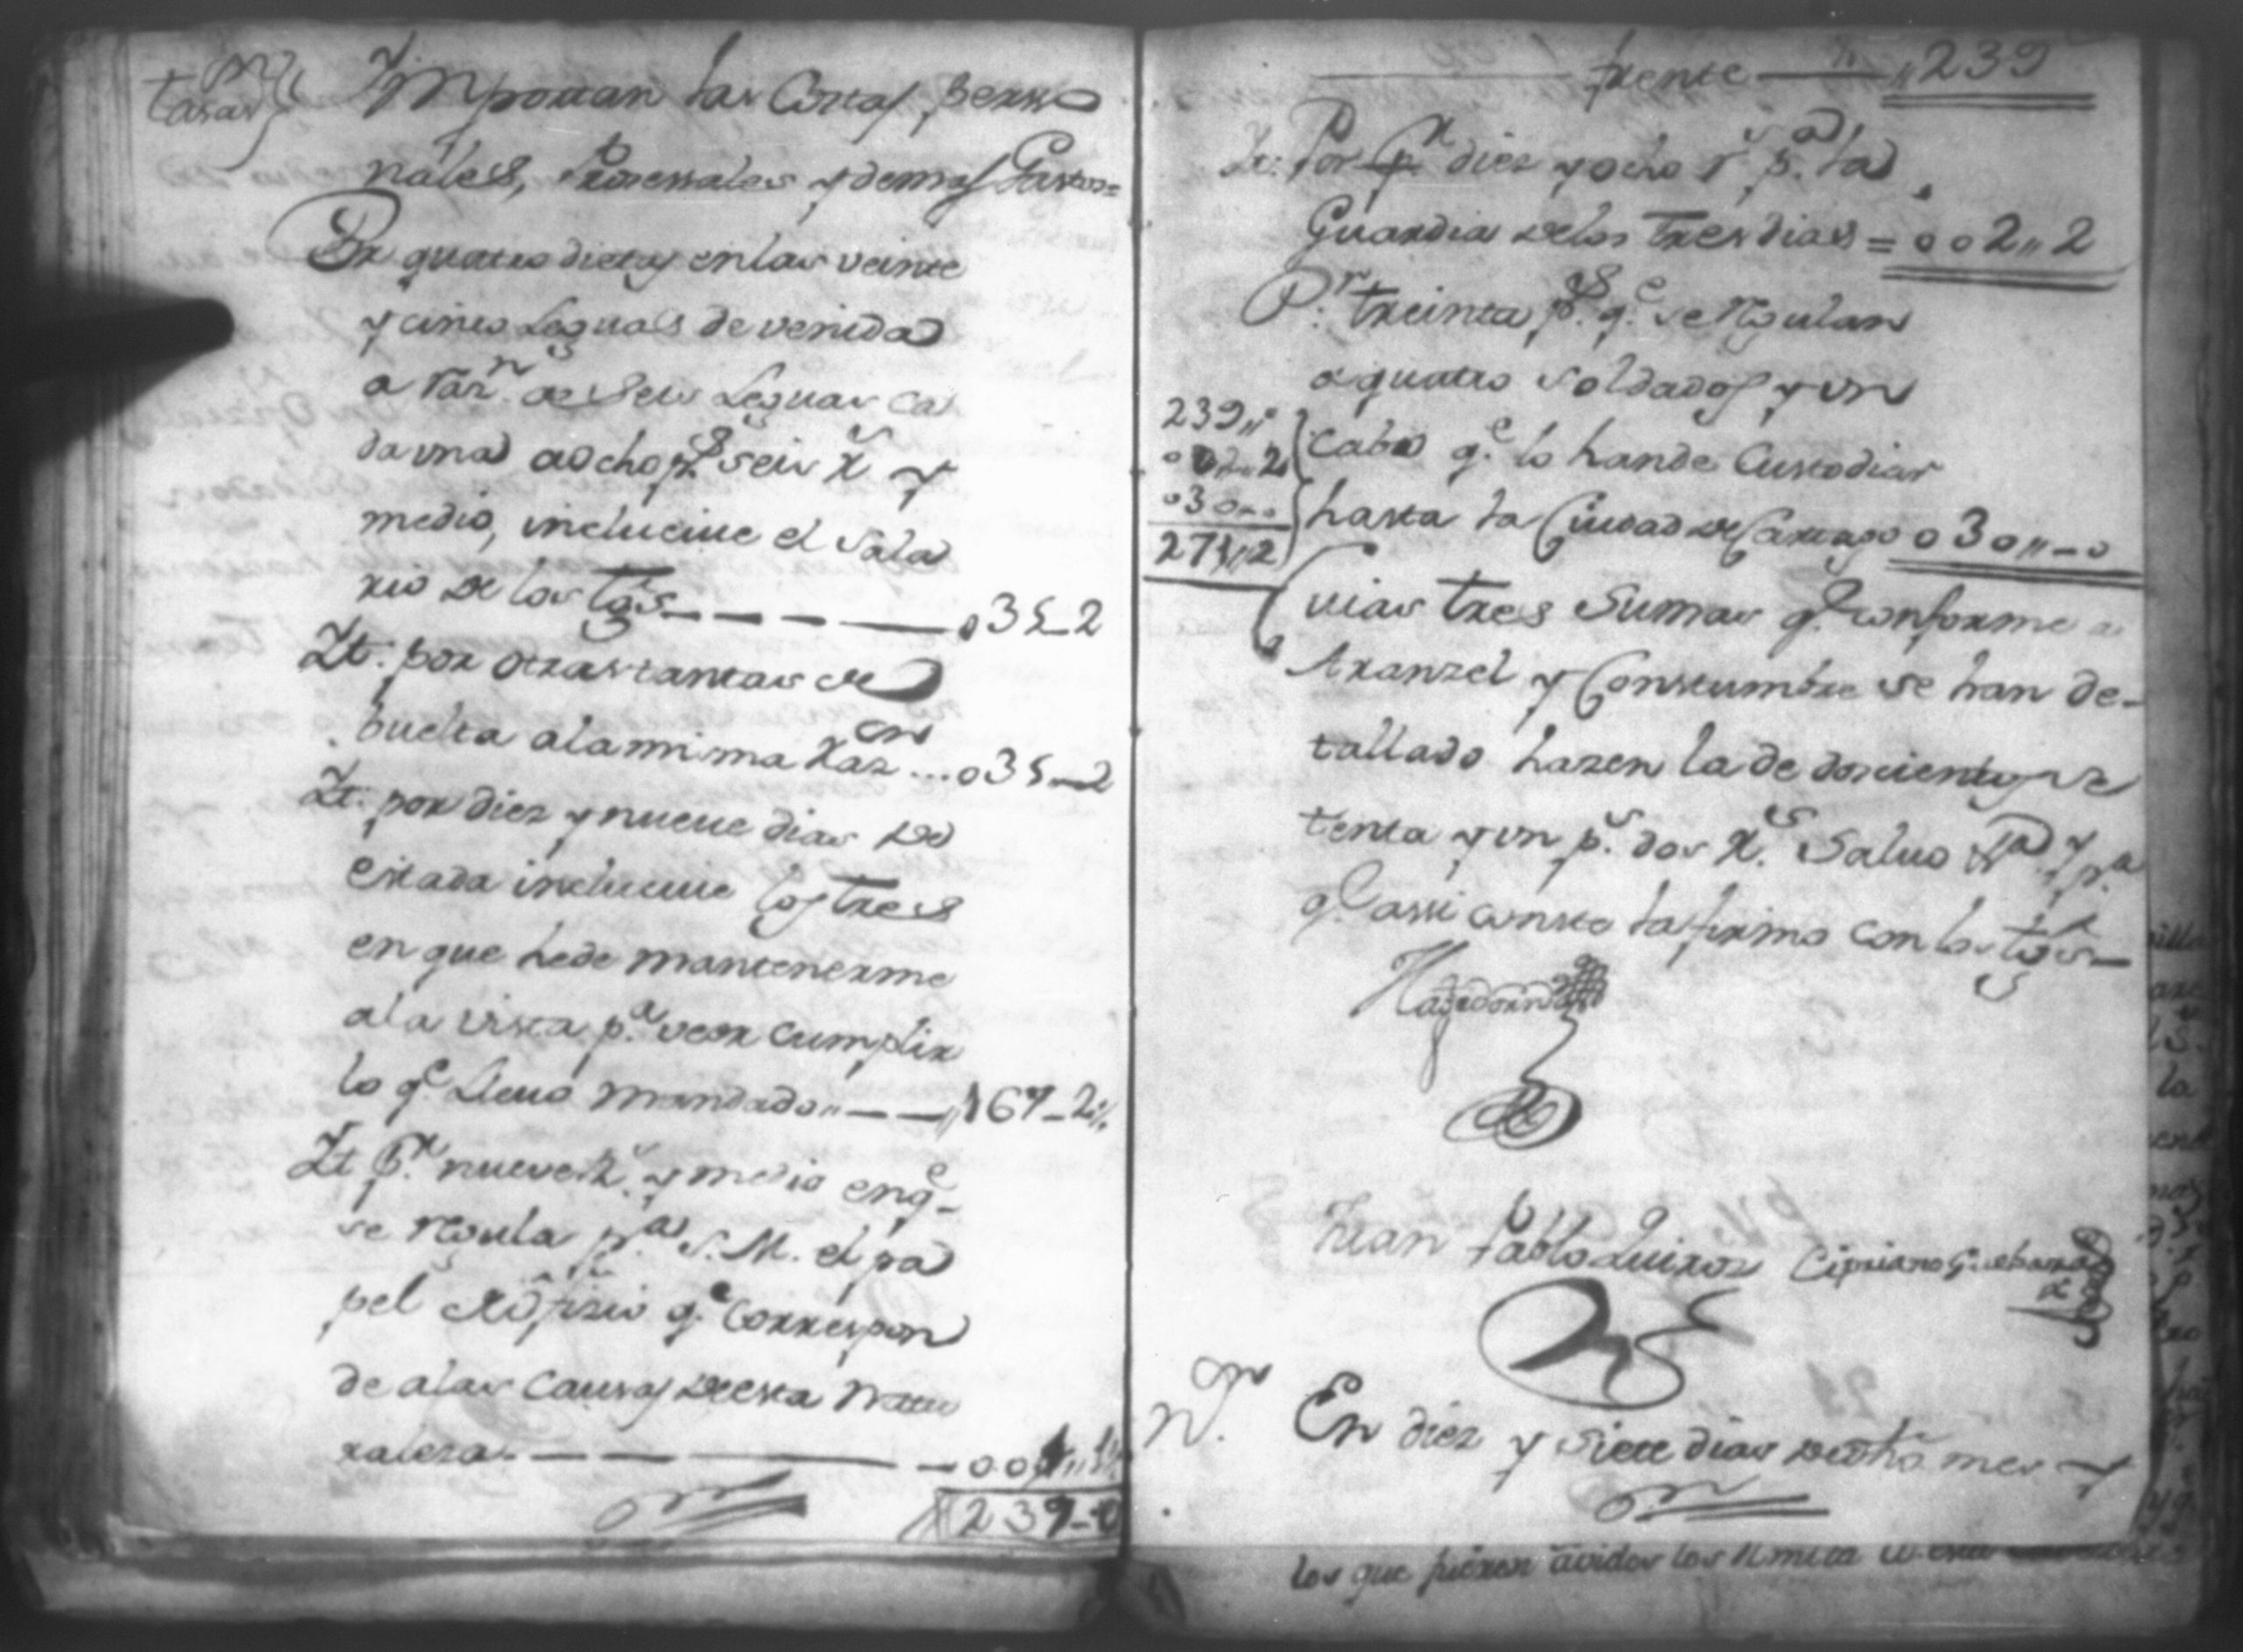 Tasas.on
Importan las Costas perso
nales, Prosesales y demas Gastos=
Por quatro dietas en las veinte
y cinco Leguas de venida
a razn. de seis Leguas ca
da una a ocho ps. seis rs. y
medio, inclucive el sala
rio de los tgos. _ _ _ _ 035_2
It. por otras tantas de
buelta a la misma razon ... 035_2
It. por diez y nueve dias de
estada inclucive los tres
en que hede mantenerme
a la vista pa. veer cumplir
lo qe. llevo mandado,, _ _ ,,167_2½
It. pr. nueve rs. y medio en qe.
se regula pa. S. M. el pa
pel de ofizio qe. Correspon
de a las Causas de esta natu
raleza. _ _ _ _ 001,,1½
239_0
frente ,,239
It. Por diez y ocho rs. pa. la
Guardia de los tres dias = 002,,2
Pr. treinta ps. qe. se regulan
a quatro soldados y un
Cabo qe. lo hande Custodiar
hasta la Ciudad de Cartago 030,,_0
239,,0
002,,2
030,,0
271,,2
Cuias tres Sumas qe. conforme a
Aranzel y Constumbre se han de-
tallado hazen la de docientos se
tenta y un ps. dos rs. Salvo
qe. assi conste la firmo con los tgos._
Juan Pablo Quiros Cipriano
N.on En diez y siete dias de dho. mes y
los que fueren avidos los remita